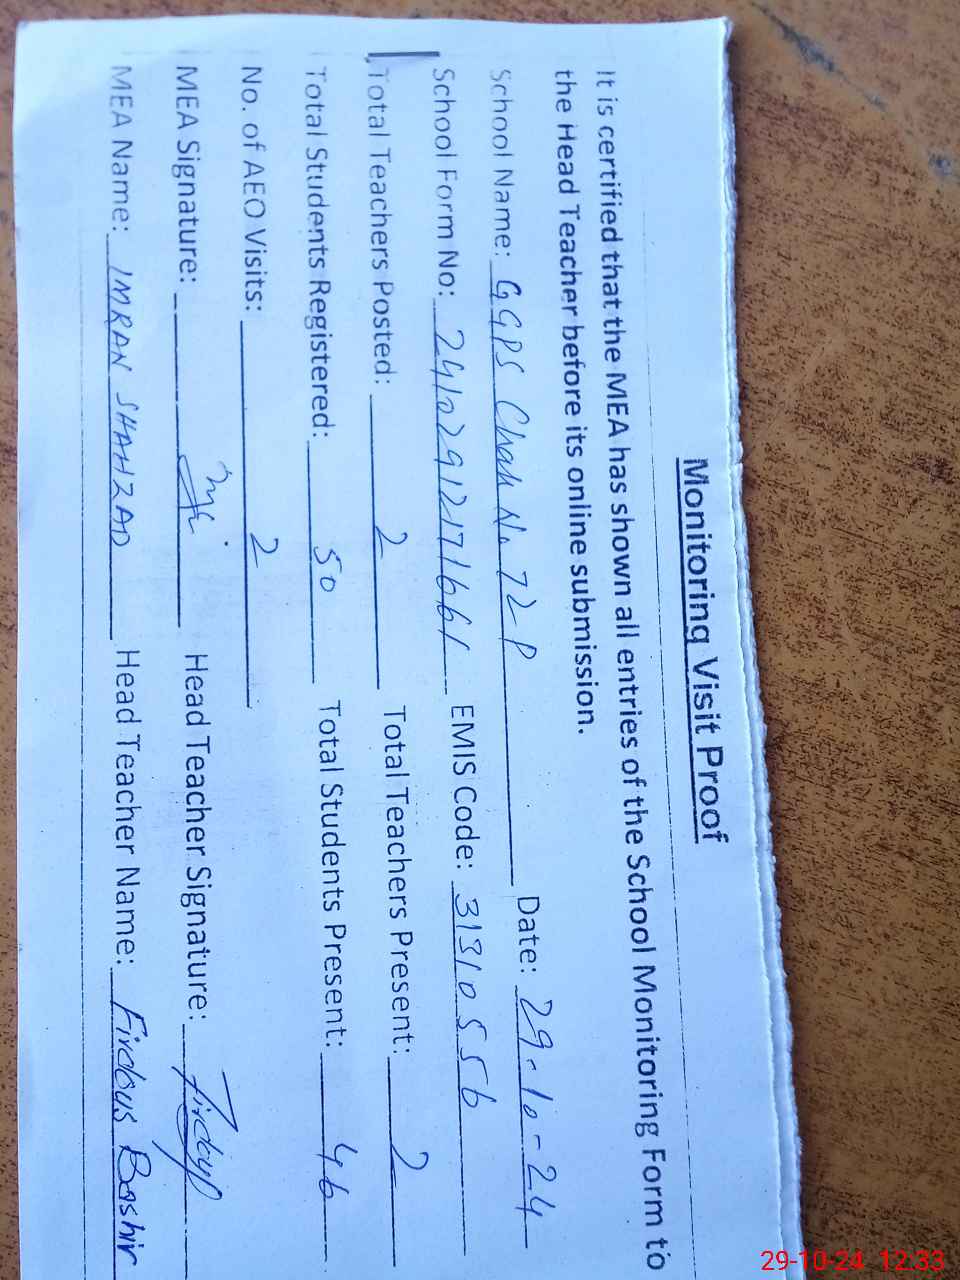 Monitoring Visit Proof
It is certified that the MEA has shown all entries of the School Monitoring Form to
the Head Teacher before its online submission.
School Name: GGPS Chak No 72 P Date: 29-10-24
School Form No: 241029121711661 EMIS Code: 31310556
Total Teachers Posted: 2 Total Teachers Present: 2
Total Students Registered: 50 Total Students Present: 46
No. of AEO Visits: 2
MEA Signature: Head Teacher Signature:
MEA Name: IMRAN SHAHZAD Head Teacher Name: Firdous Bashir
29-10-24 12:33